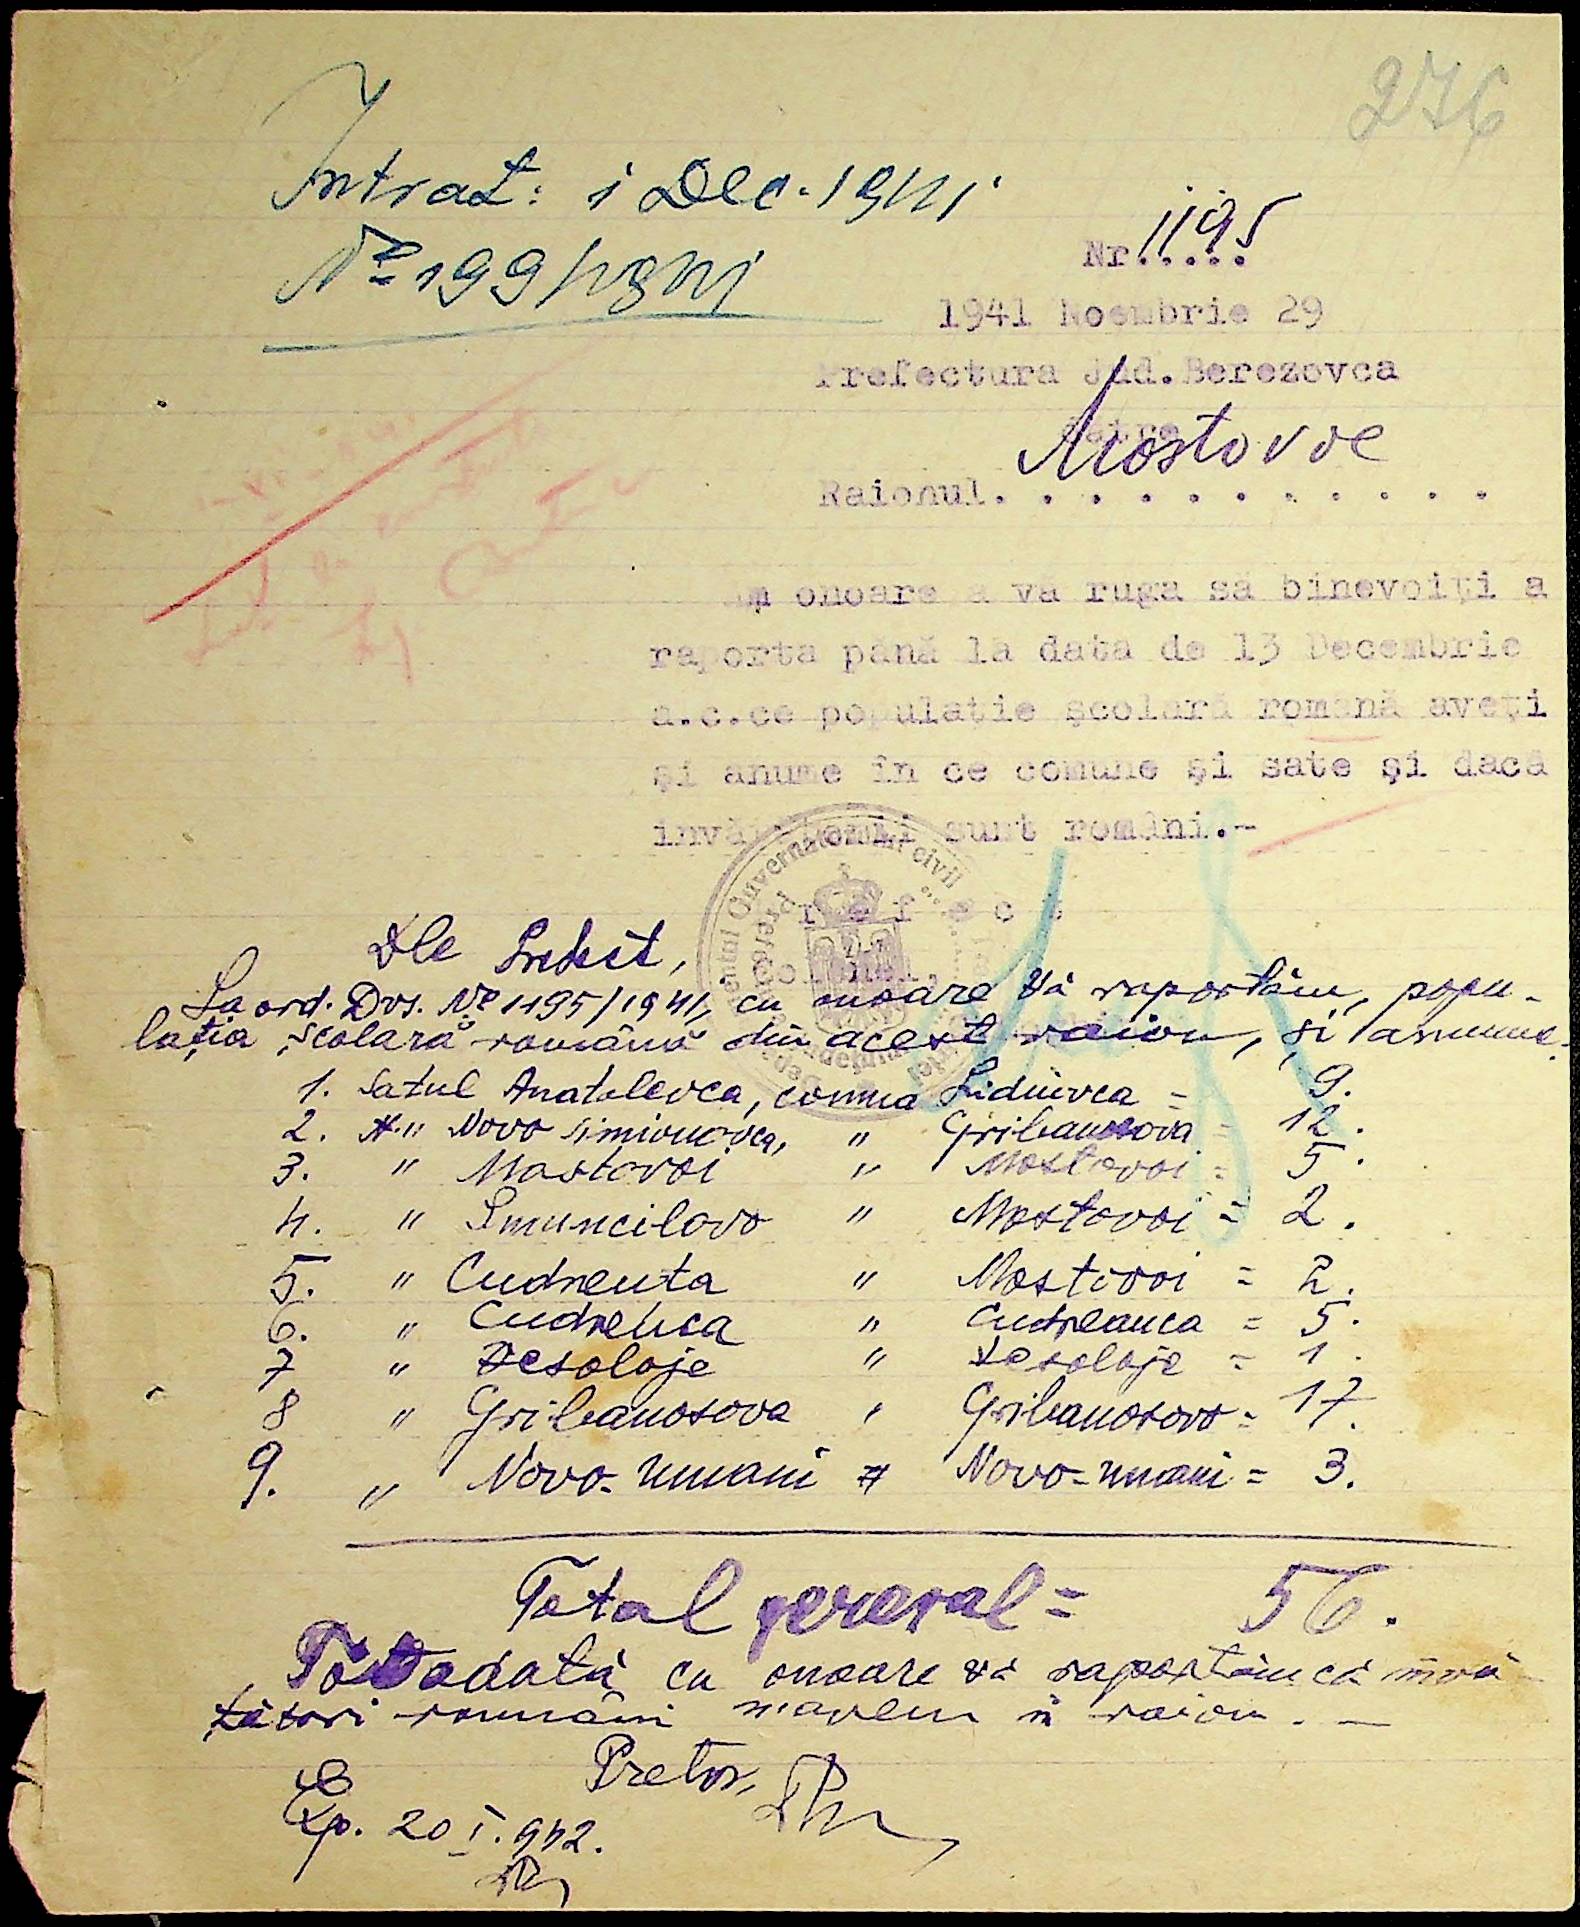 276
Intrat: 1 Dec. 1941
Nº 199/1941
Nr. 1195
1941 Noembrie 29
Prefectura Jud. Berezovca
către
Raionul Mostovoe
Am onoare a vă ruga să binevoiți a
raporta până la data de 13 Decembrie
a.c. ce populație școlară română aveți
și anume în ce comune și sate și dacă
învățătorii sunt români.-
Prefect
Colonel,
Dle Prefect,
La ord. Dvs. Nº 1195/1941, cu onoare vă raportăm, popu-
lația școlară română din acest raion, și anume:
1. Satul Anatolevca, comuna Lidiievca = 9.
2. " Novo Simionovca, " Gribanosova = 12.
3. " Mostovoi " Mostovoi = 5.
4. " Smuncilovo " Mostovoi = 2.
5. " Cudreuta " Mostovoi = 2.
6. " Cudreuca " Cudreauca = 5.
7 " Vesoloje " Vesoloje = 1.
8 " Gribanosova " Gribanosovo = 17.
9. " Novo-Umani " Novo-Umani = 3.
Total general = 56.
Totodată cu onoare vă raportăm că învă-
țători români n'avem în raion. —
Pretor,
Exp. 20 I. 942.